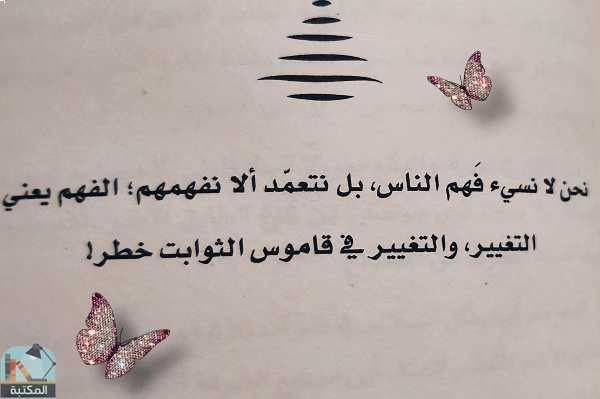 نحن لا نسيء فَهم الناس، بل نتعمّد ألا نفهمهم؛ الفهم يعني
التغيير، والتغيير في قاموس الثوابت خطر!
المكتبة